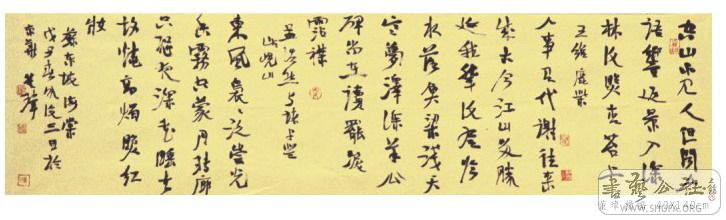 空山不见人但闻人
语响返景入深
林复照青苔上
王维鹿柴
人事有代谢往来
成古今江山留胜
迹我辈复登临
水落鱼梁浅天
寒梦泽深羊公
碑尚在读罢泪
沾襟
孟浩然与诸子登
岘山
东风袅袅泛崇光
香雾空蒙月转廊
只恐夜深花睡去
故烧高烛照红
妆
苏东坡海棠
戊
京华
书艺公社
WWW.SHUFA.ORG